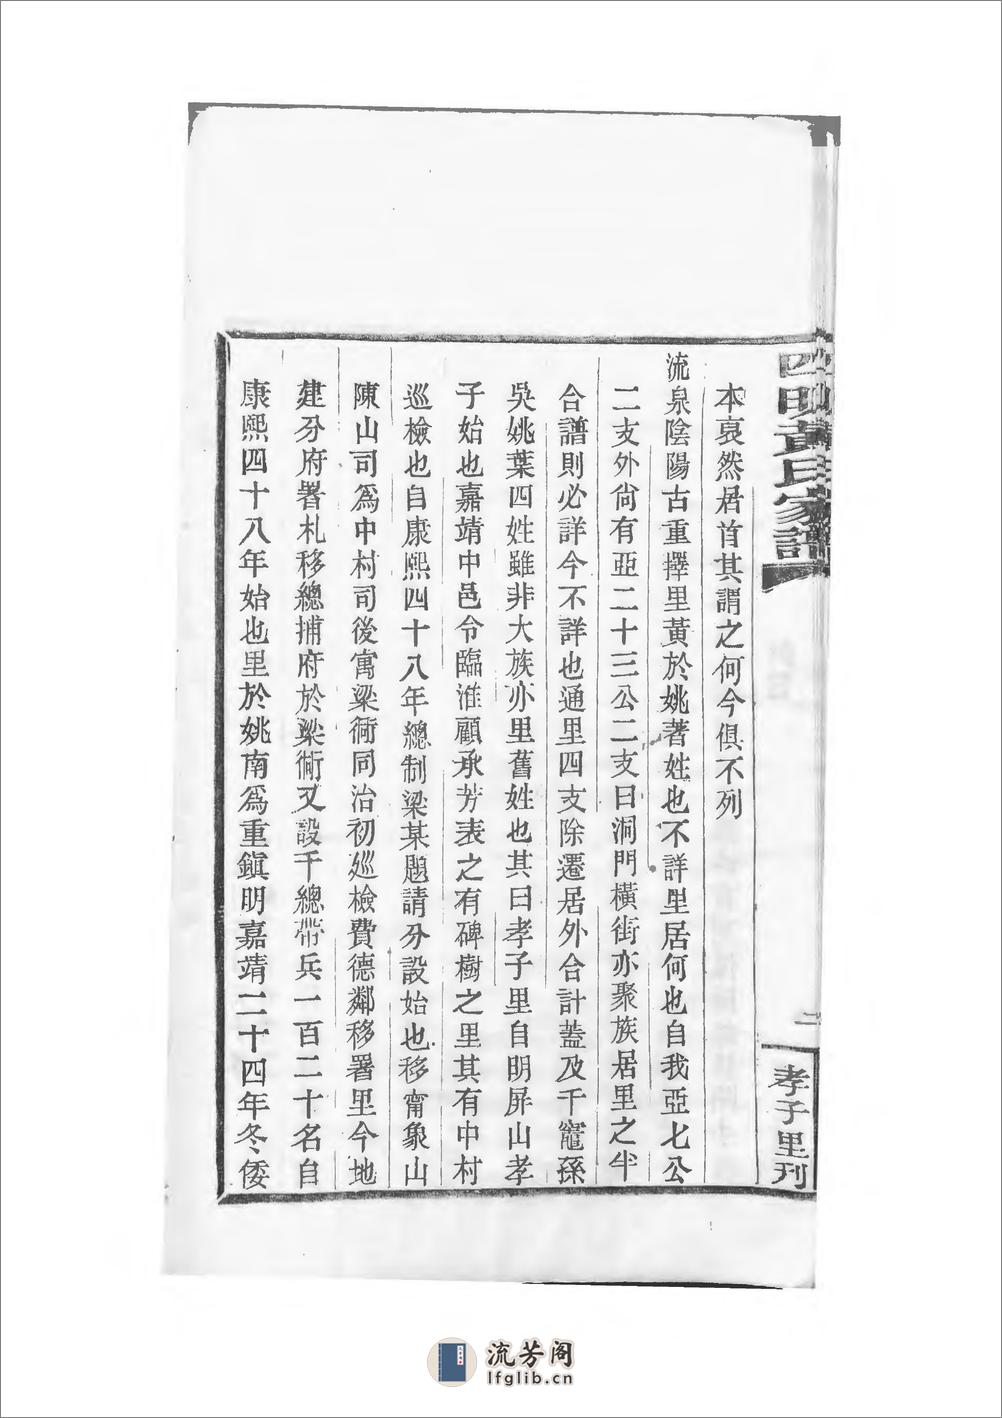 四明黃氏家譜
二
孝子里刋
本裒然居首其謂之何今俱不列
流泉陰陽古重擇里黃於姚著姓也不詳里居何也自我亞七公
二支外尙有亞二十三公二支曰洞門橫街亦聚族居里之半
合譜則必詳今不詳也通里四支除遷居外合計蓋及千竈孫
吳姚葉四姓雖非大族亦里舊姓也其曰孝子里自明屏山孝
子始也嘉靖中邑令臨淮顧承芳表之有碑樹之里其有中村
巡檢也自康熙四十八年總制梁某題請分設始也移甯象山
陳山司爲中村司後寓梁衕同治初廵檢費德鄰移署里今地
建分府署札移總捕府於梁衕又設千總帶兵一百二十名自
康熙四十八年始也里於姚南爲重鎭明嘉靖二十四年冬倭
流芳阁
lfglib.cn